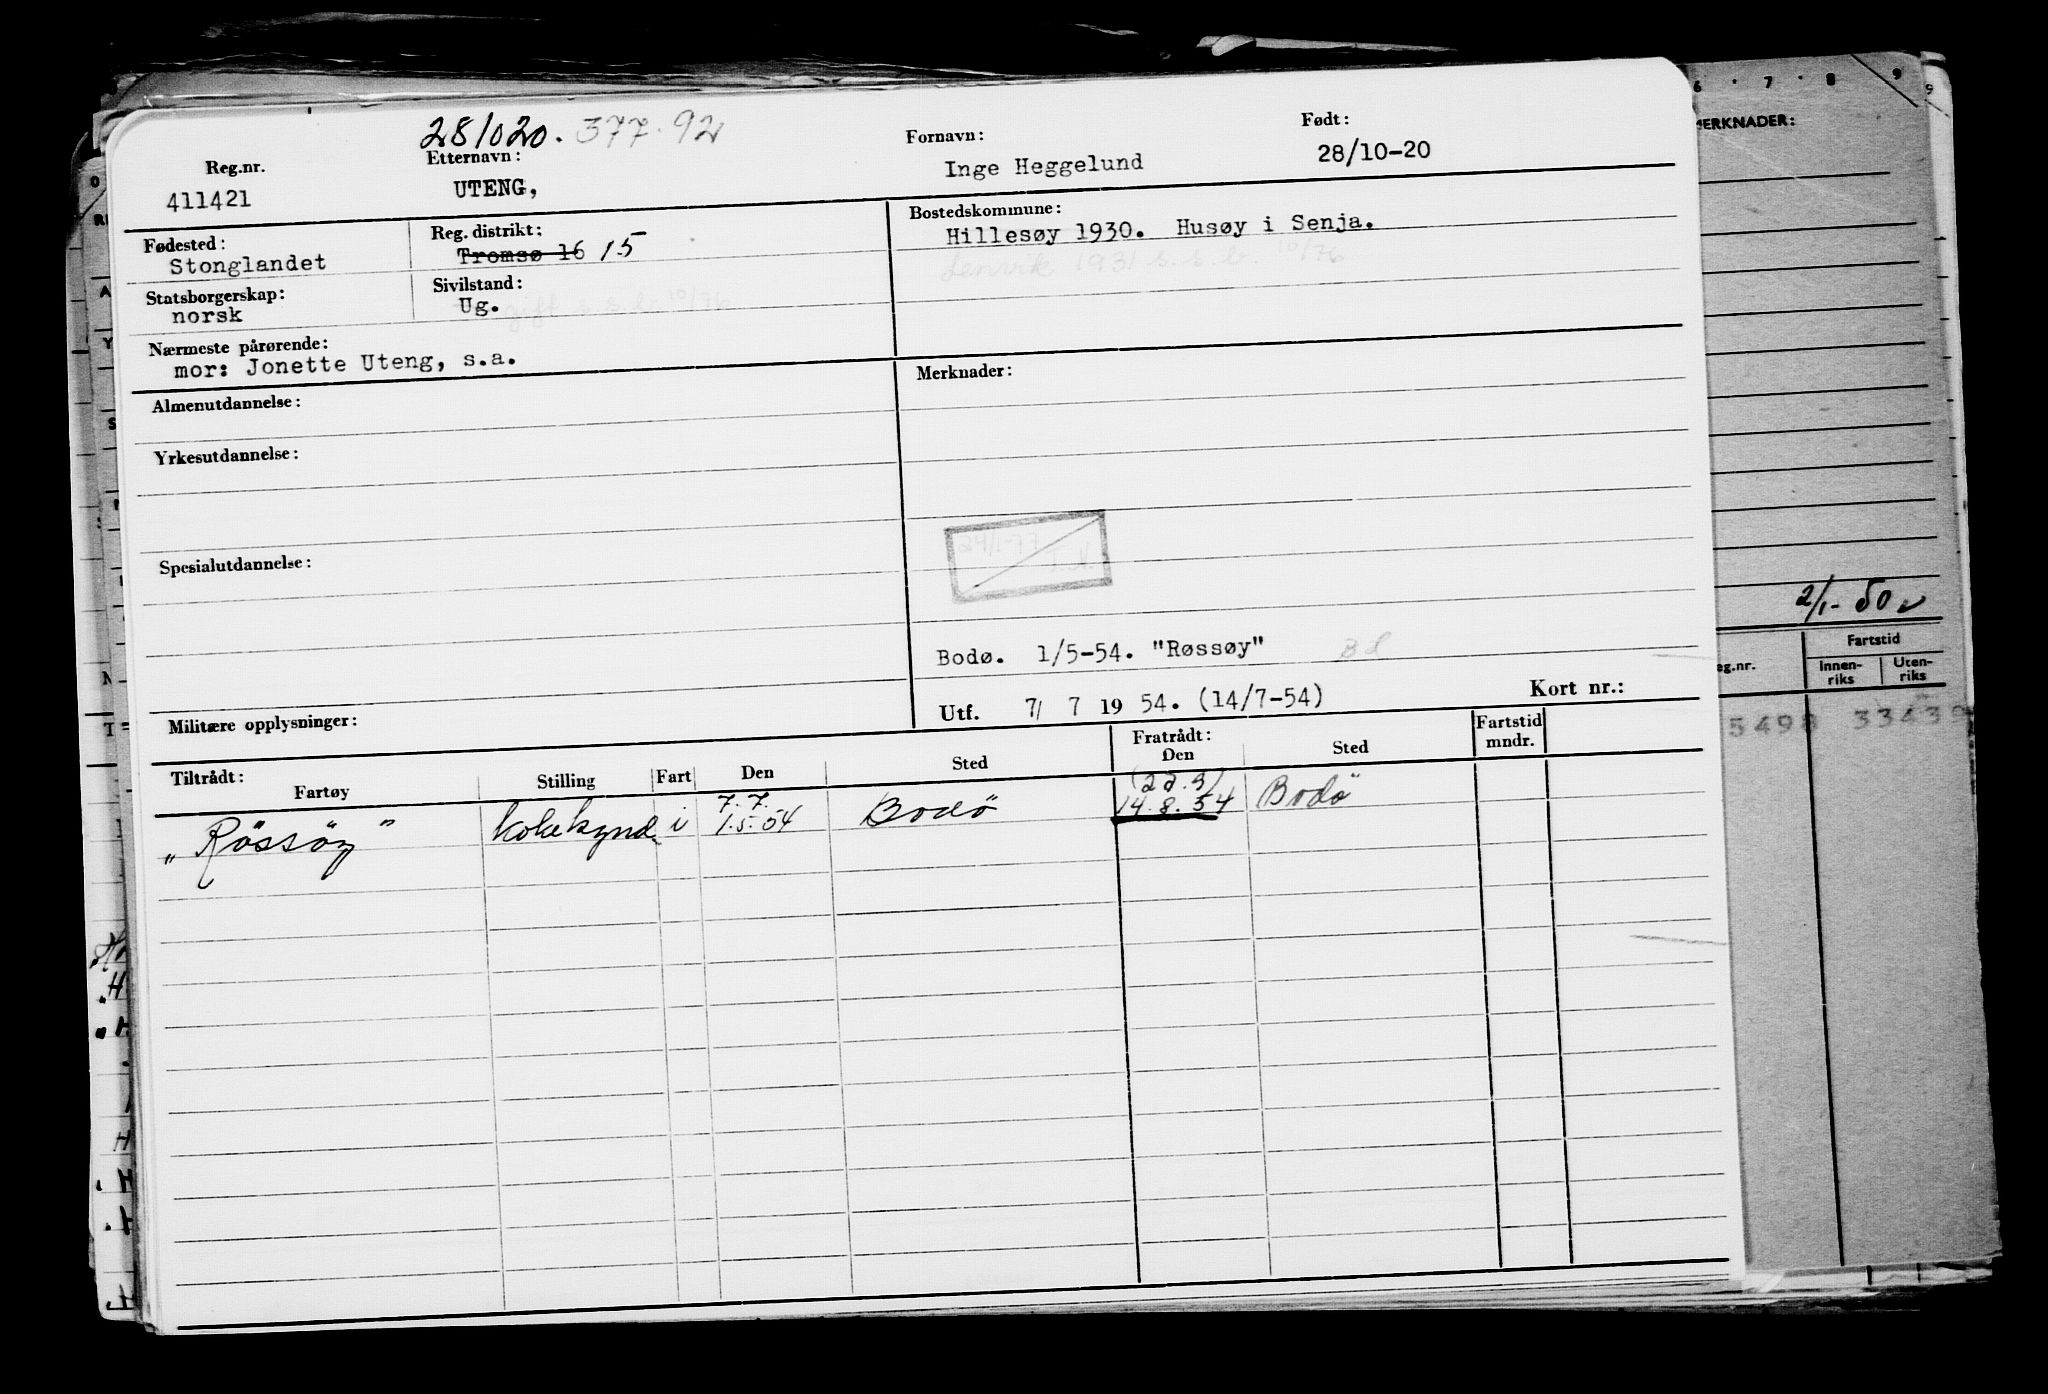 281020. 377.92
Reg.nr. Etternavn: Fornavn: Født:
411421 UTENG, Inge Heggelund 28/10-20
Fødested: Reg. distrikt: Bostedskommune:
Stonglandet Tromsø 16 15 Hillesøy 1930. Husøy i Senja.
Lenvik 1931 s.s.b. 10/76
Statsborgerskap: Sivilstand:
norsk Ug. gift s.s.b. 10/76
Nærmeste pårørende:
mor: Jonette Uteng, s.a.
Merknader:
Almenutdannelse:
Yrkesutdannelse:
24/1-77
T.N.
Spesialutdannelse:
Bodø. 1/5-54. "Røssøy"
Utf. 7/ 7 19 54. (14/7-54) Kort nr.:
Militære opplysninger:
Tiltrådt: Fratrådt: Fartstid
Fartøy Stilling Fart Den Sted Den Sted mndr.
7.7. (22.9)
"Rössöy" i 1.5.54 Bodö 14.8.54 Bodö
6 7 8 9
MERKNADER:
2/1-50
eg.nr. Fartstid
Innen-riks Uten-riks
5498 3343